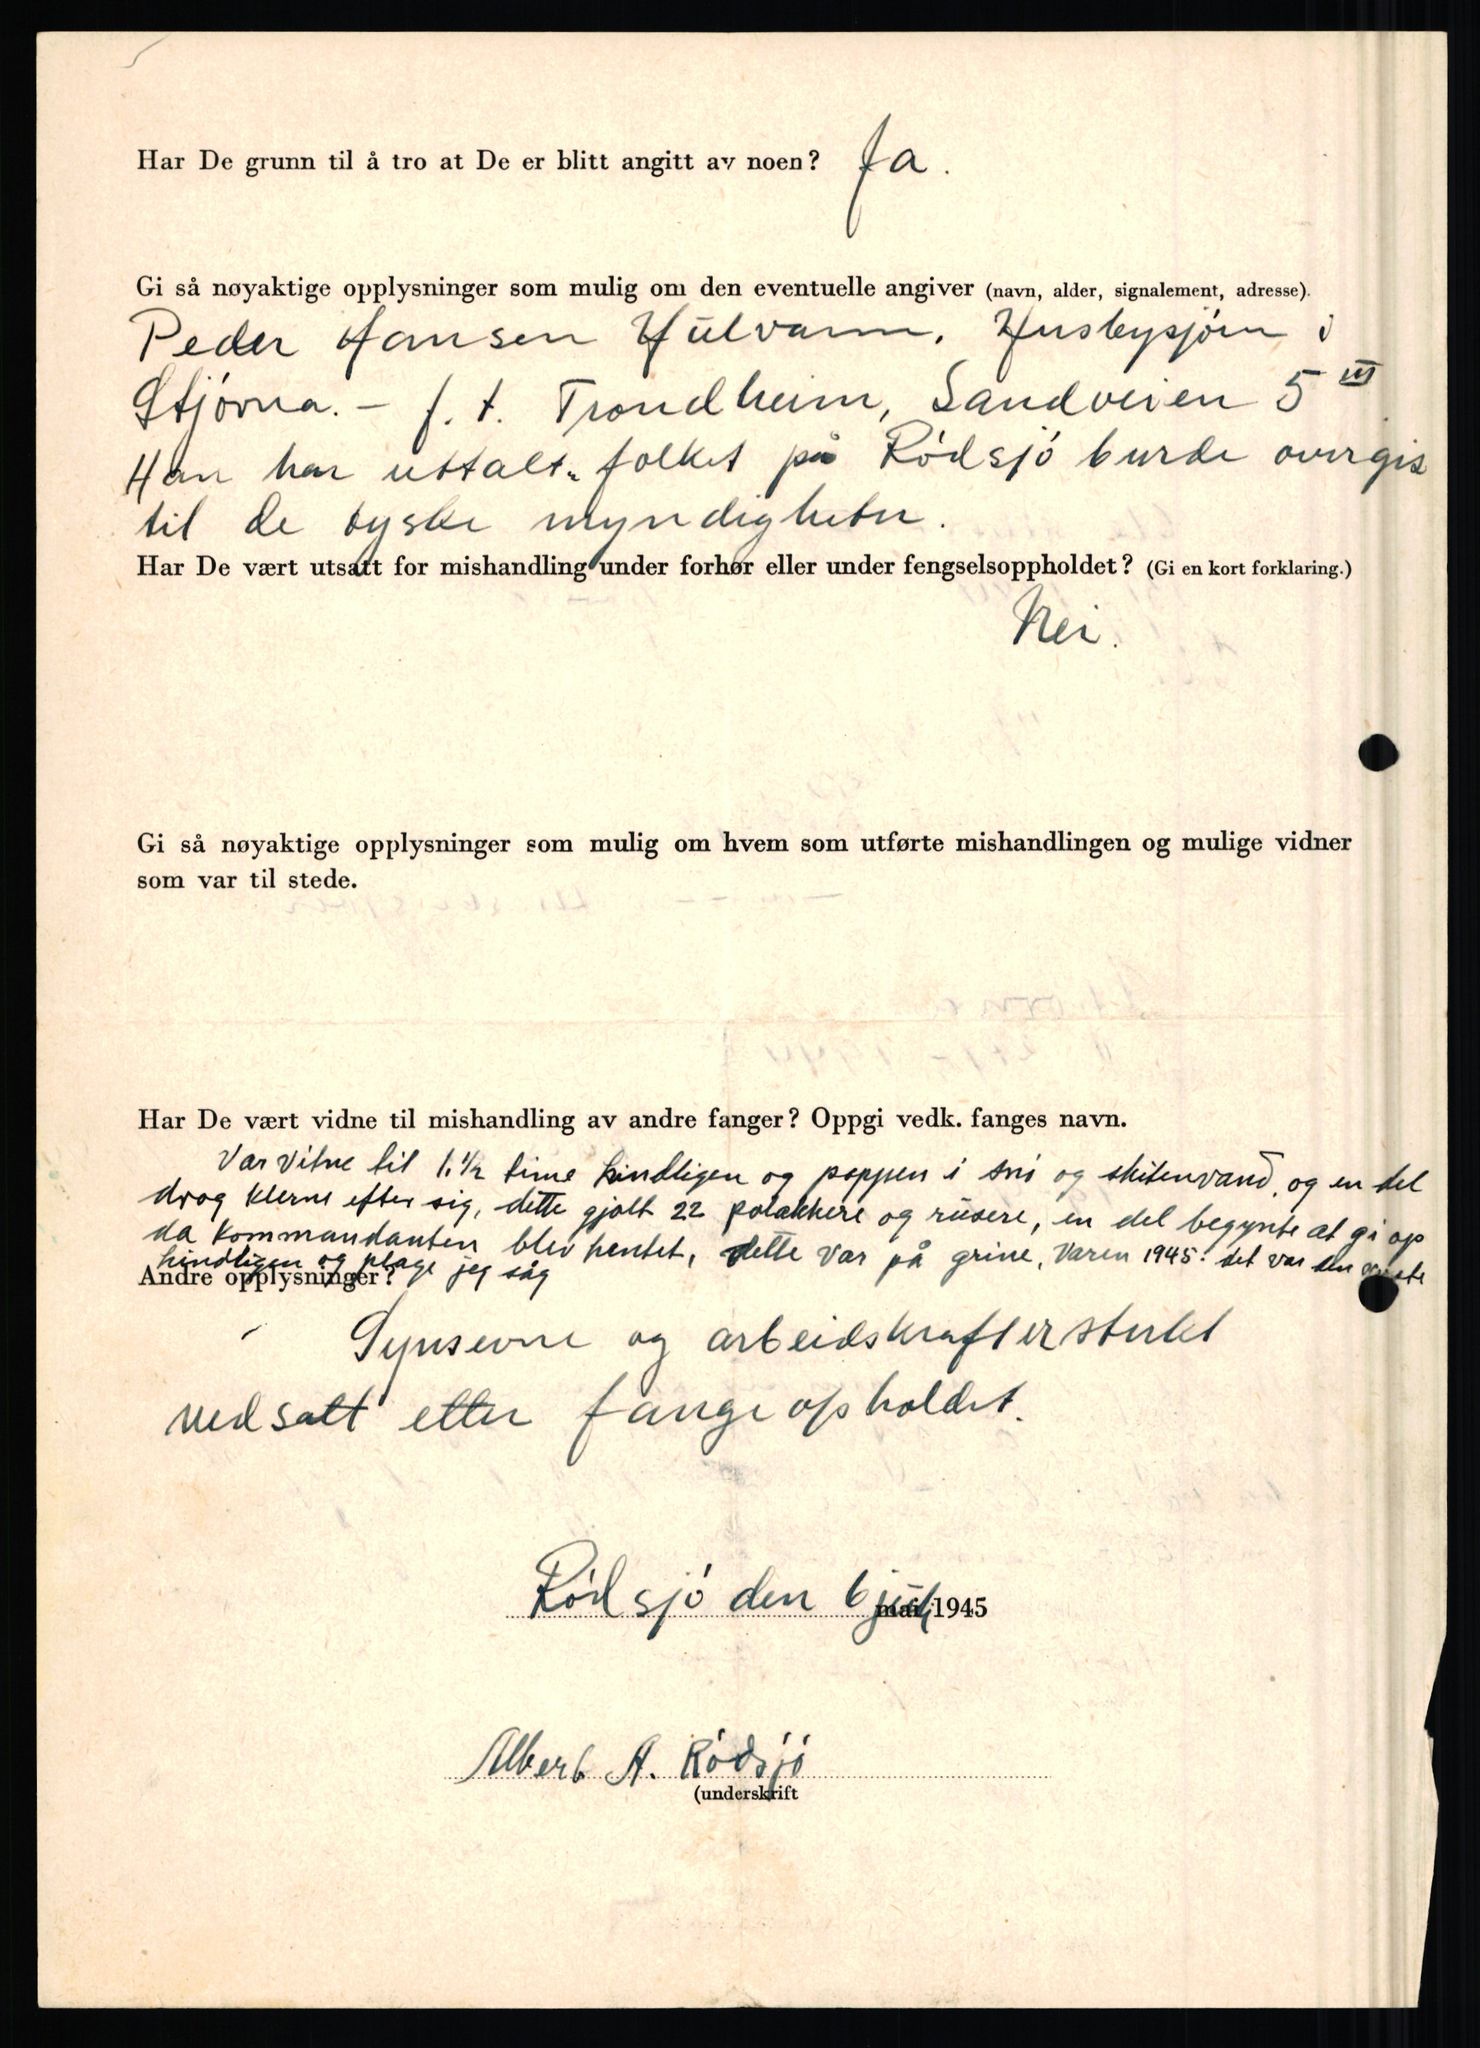 Har De grunn til å tro at De er blitt angitt av noen? Ja.
Gi så nøyaktige opplysninger som mulig om den eventuelle angiver (navn, alder, signalement, adresse).
Peder Hansen Hulvann, Husbysjøen i
Stjørna. – f. t. Trondheim, Sandveien 5 III
Han har uttalt „ folket på Rødsjø burde overgis
til de tyske myndigheter.
Har De vært utsatt for mishandling under forhør eller under fengselsoppholdet? (Gi en kort forklaring.)
Nei.
Gi så nøyaktige opplysninger som mulig om hvem som utførte mishandlingen og mulige vidner
som var til stede.
Har De vært vidne til mishandling av andre fanger? Oppgi vedk. fanges navn.
Var vitne til 1.½ time hindligen og poppen i snø og skitenvand, og en del
drog klerne efter sig, dette gjolt 22 polakkere og rüsere, en del begynte at gi op
da kommandanten blev hentet, dette var på grine, Varen 1945. det var den
hindligen og plage jeg såg
Andre opplysninger?
Synsevne og arbeidskraft er sterkt
nedsatt etter fangeopholdet.
Rødsjø den 6 juli mai 1945
Albert A. Rødsjø
(underskrift